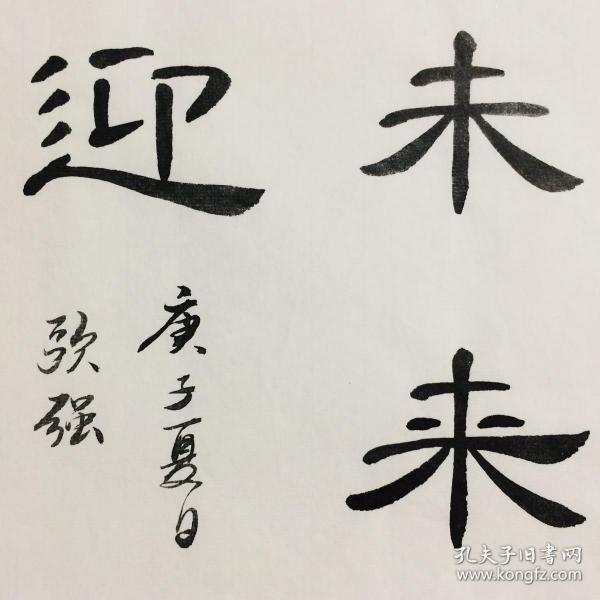 未来
迎
庚子夏日
强
孔夫子旧書网
www.kongfz.com